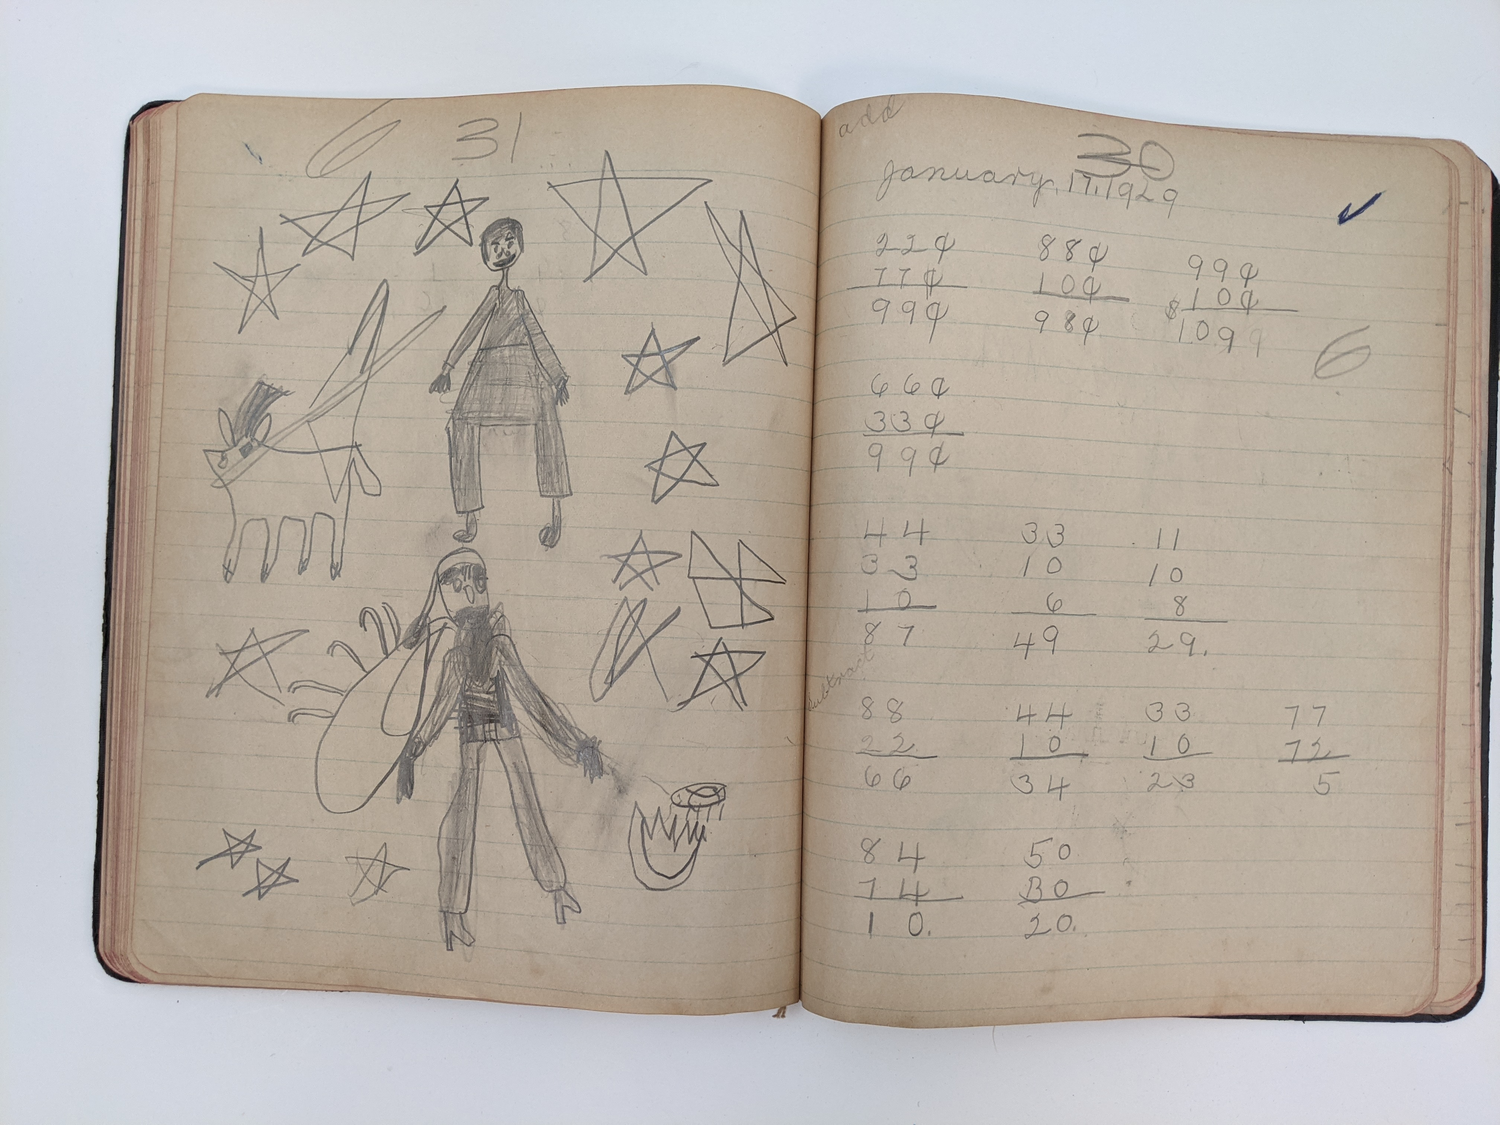 6 31
add
30
January, 17, 1929
22¢ 88¢ 99¢
77¢ 10¢ 10¢
99¢ 98¢ $109
6
66¢
33¢
99¢
44 33 11
33 10 10
10 6 8
87 49 29.
subtract
88 44 33 77
22 10 10 72
66 34 23 5
84 50
74 30
10. 20.